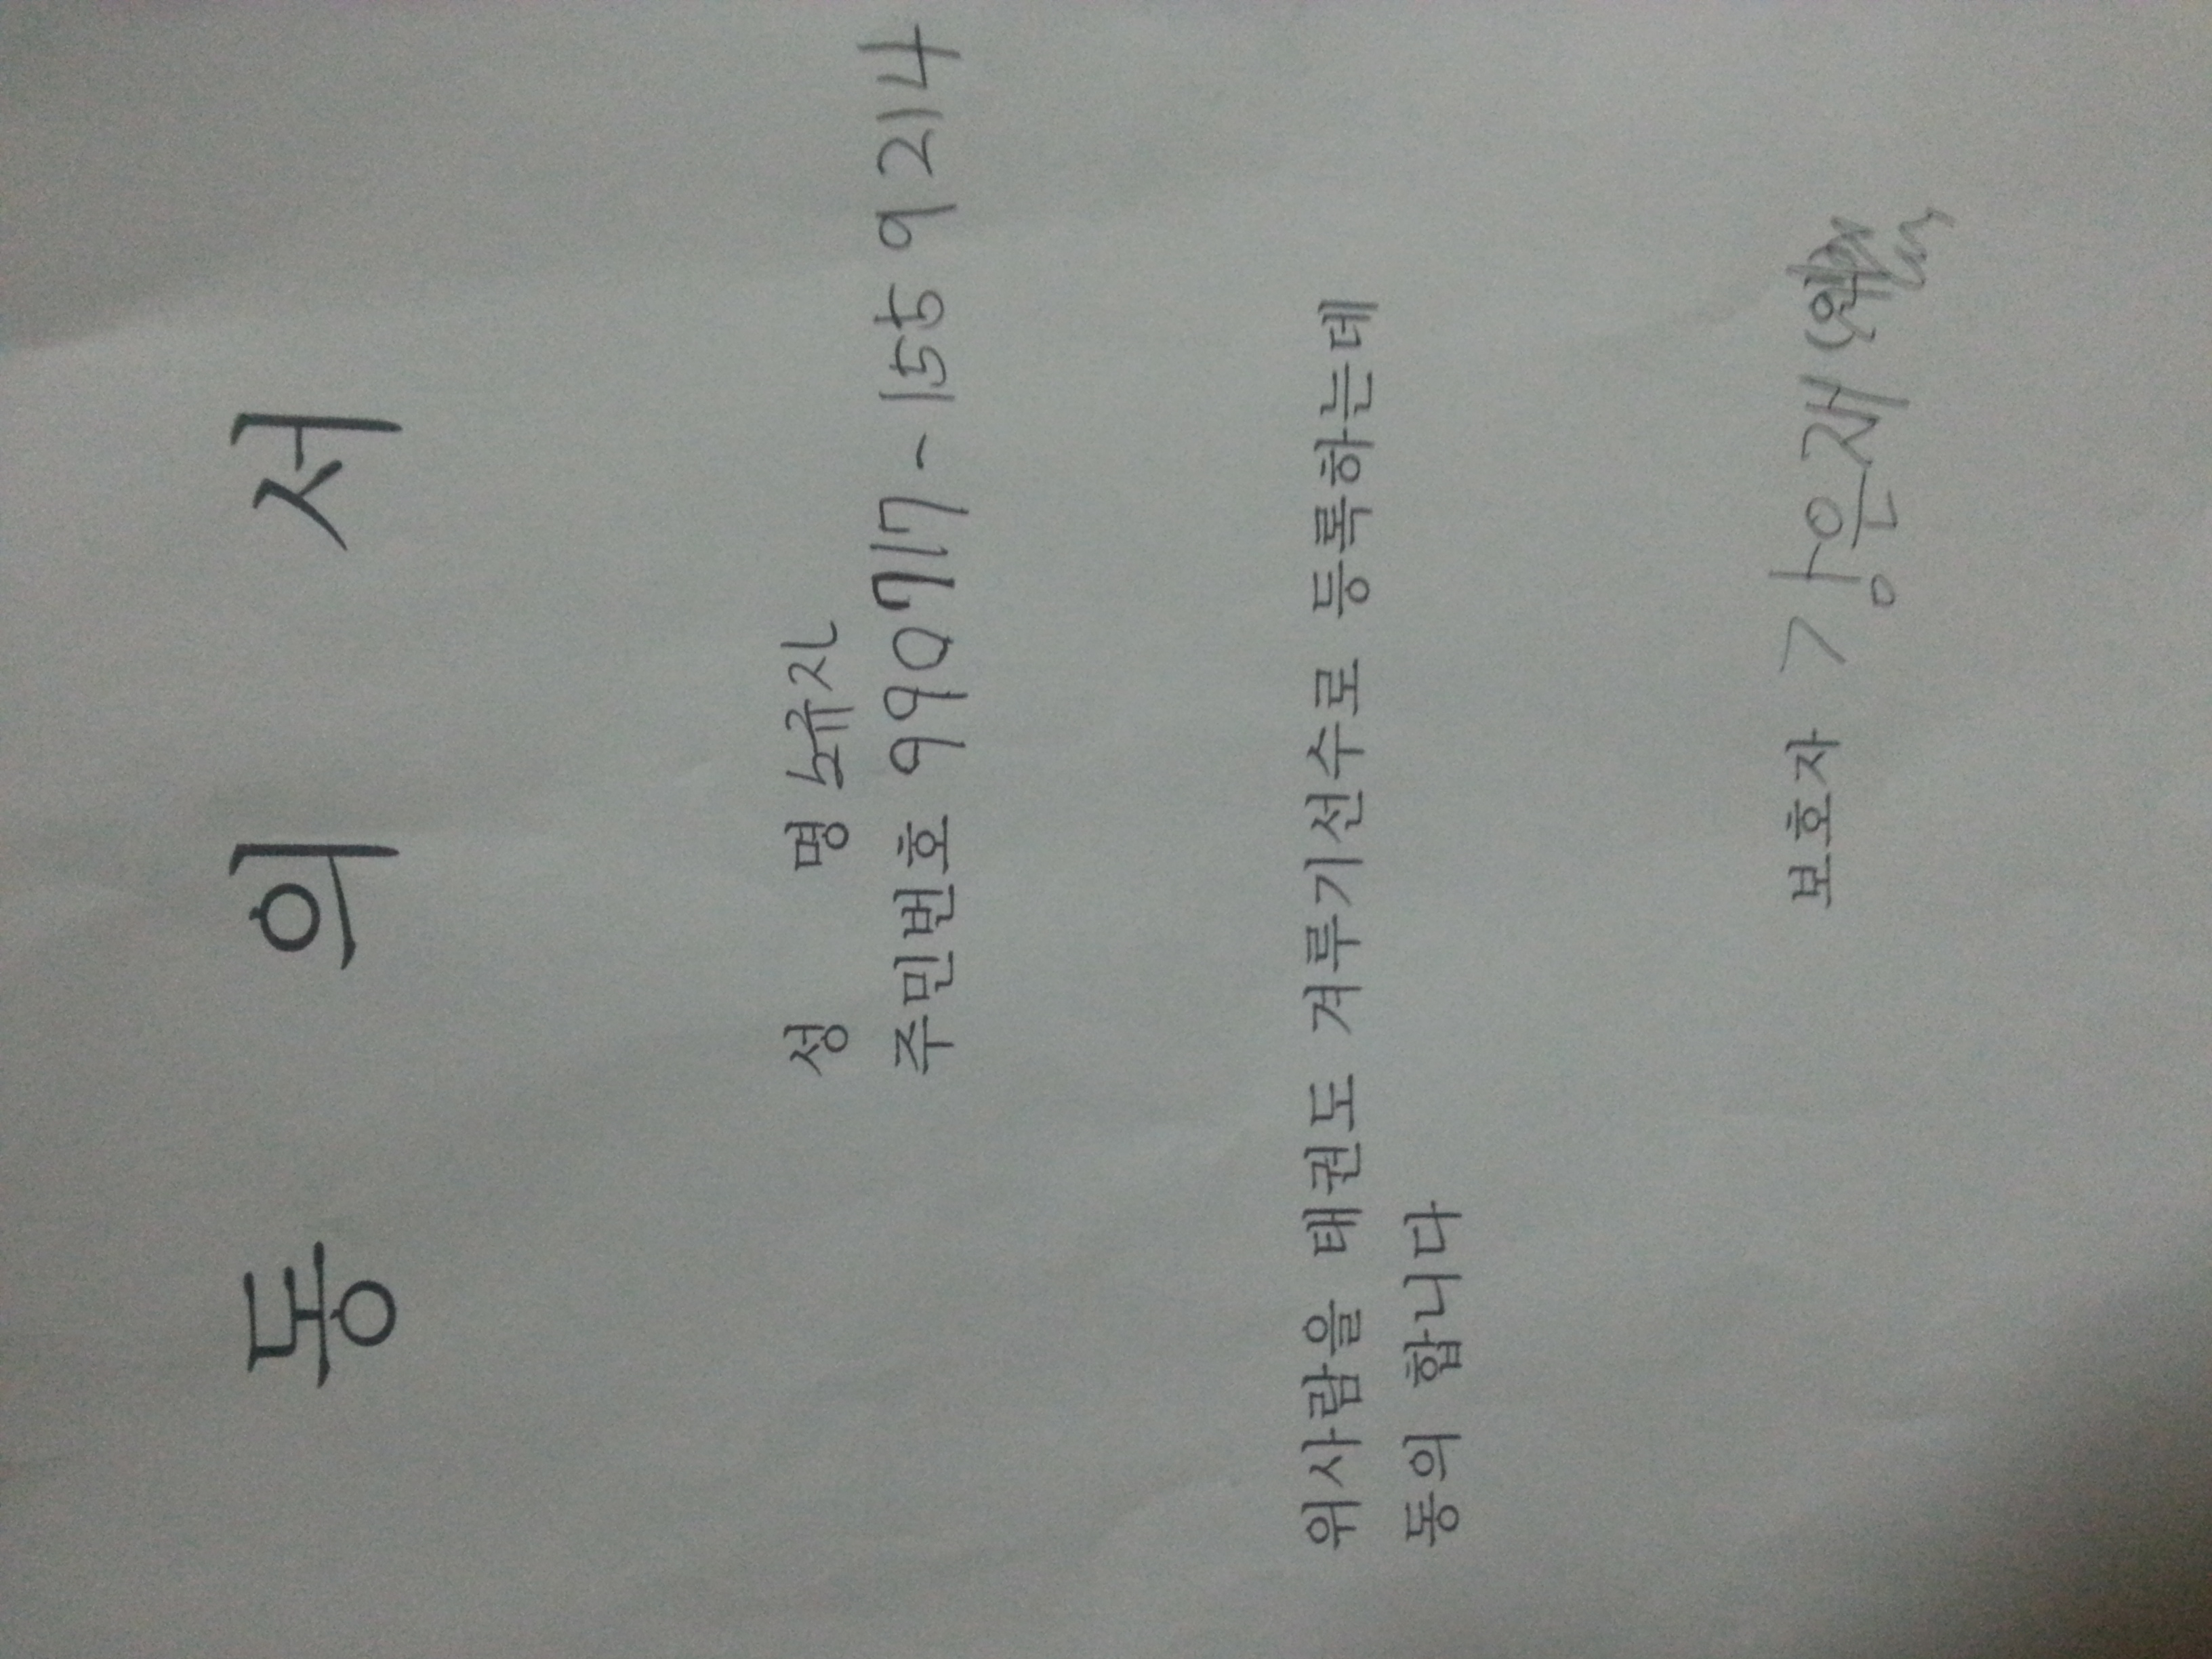 동 의 서
성 명 노유지
주민번호 990717-1559214
위사람을 태권도 겨루기선수로 등록하는데
동의 합니다
보호자 강은재 (인)